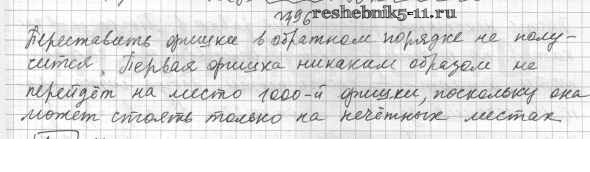 1496
reshebnik5-11.ru
Переставить фишки в обратном порядке не полу-
чится. Первая фишка никаким образом не
перейдёт на место 1000-й фишки, поскольку она
может стоять только на нечётных местах